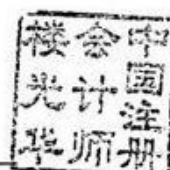 中国注册
会计师
楼光华